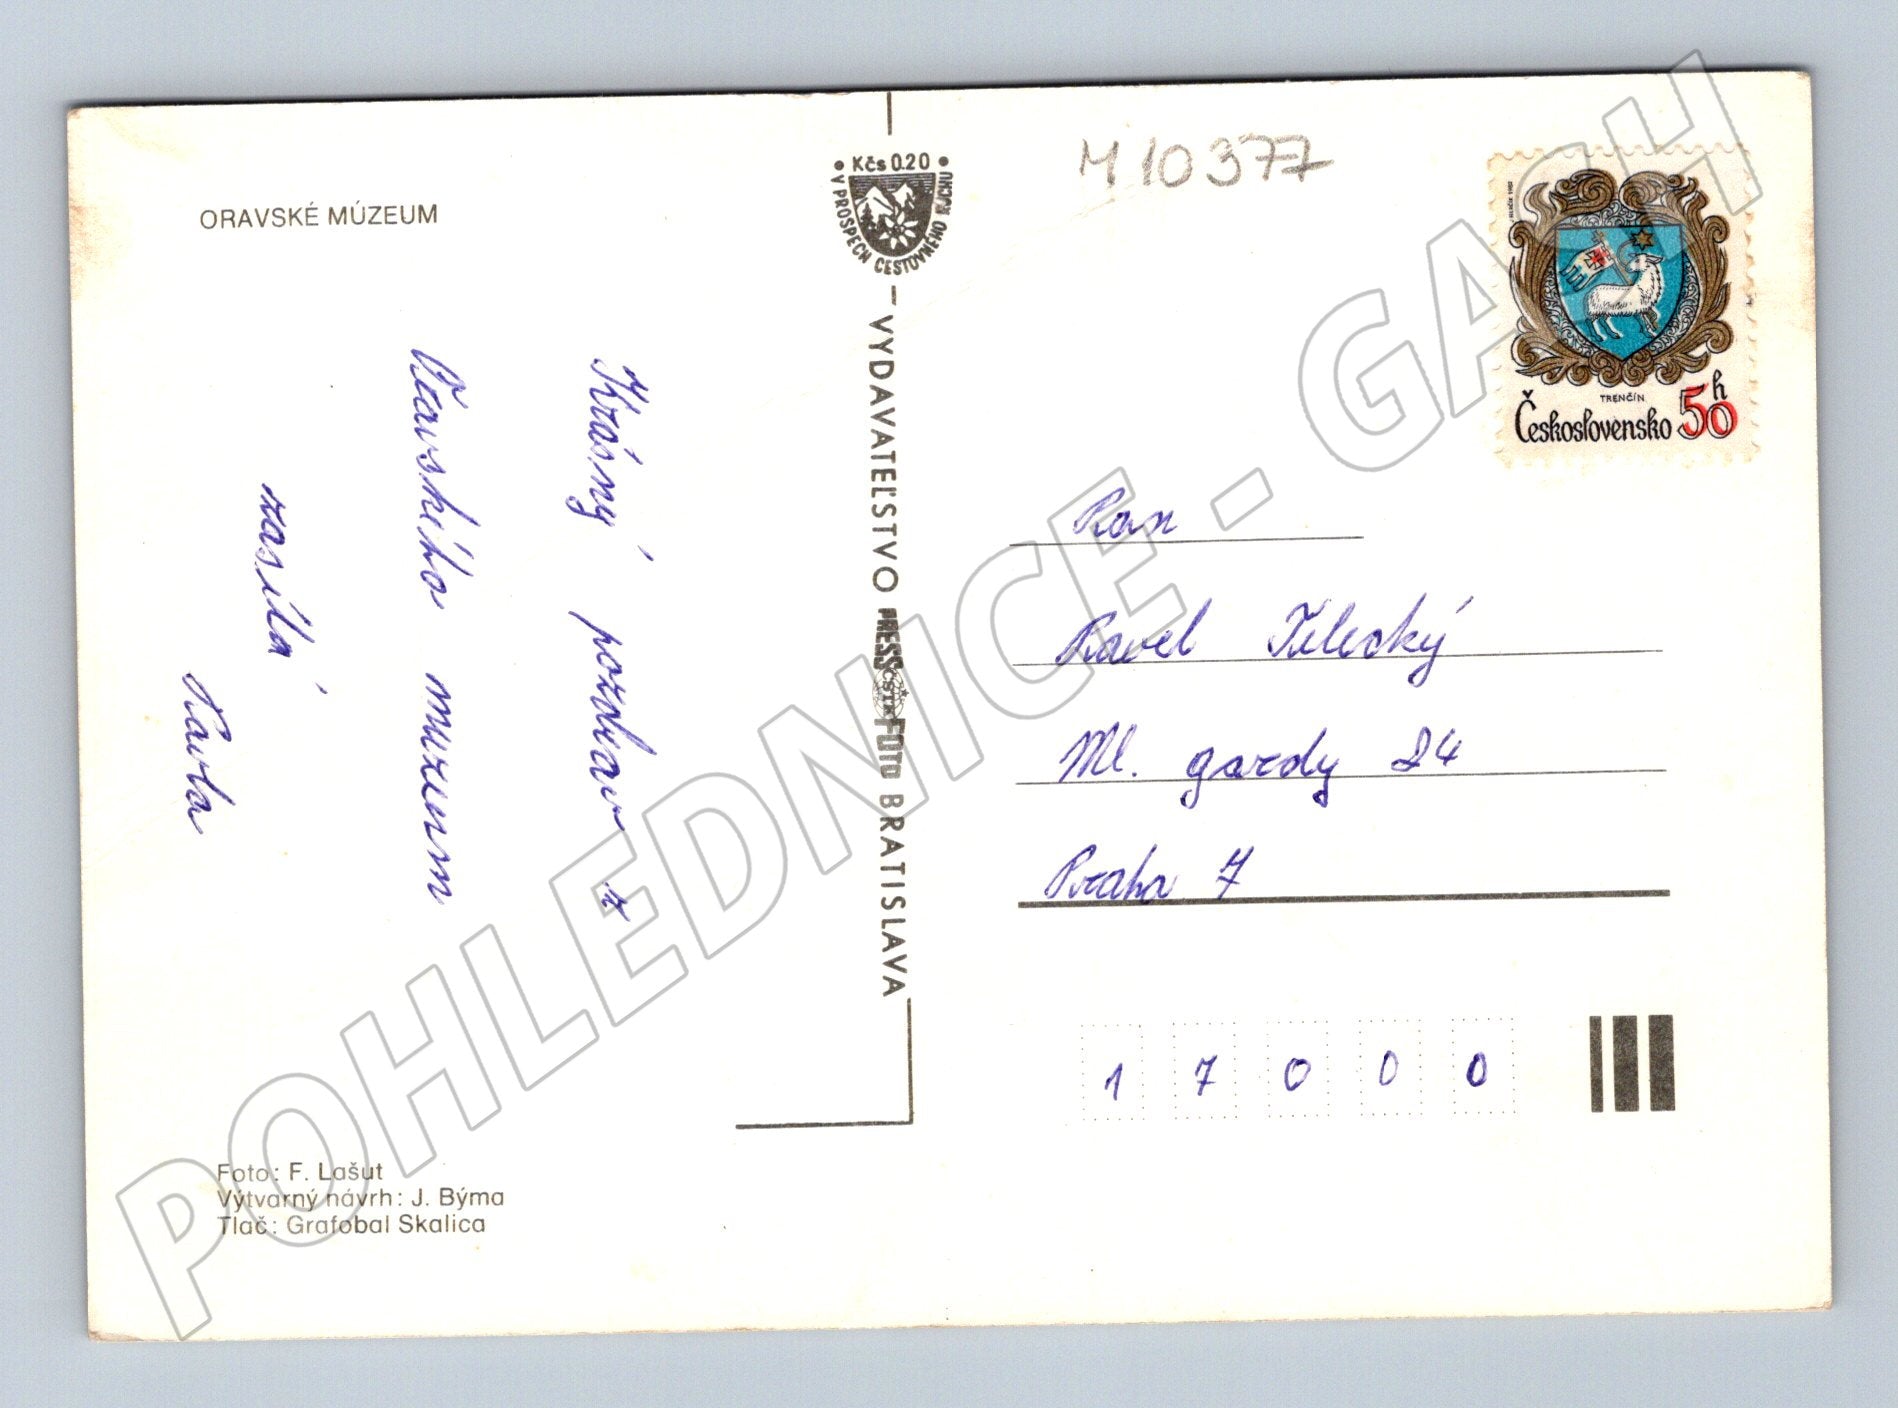 ORAVSKÉ MÚZEUM
Krásný pozdrav z
Oravského muzeum
zasílá
Pavla
Foto: F. Lašut
Výtvarný návrh: J. Býma
Tlač: Grafobal Skalica
• Kčs 0.20 •
V PROSPECH CESTOVNÉHO RUCHU
– VYDAVATEĽSTVO PRESSFOTO BRATISLAVA
ČSTK
M 10377
TRENČÍN
Československo 50h
Pan
Pavel
Ml. gardy 24
Praha 7
1 7 0 0 0
POHLEDNICE - GASH